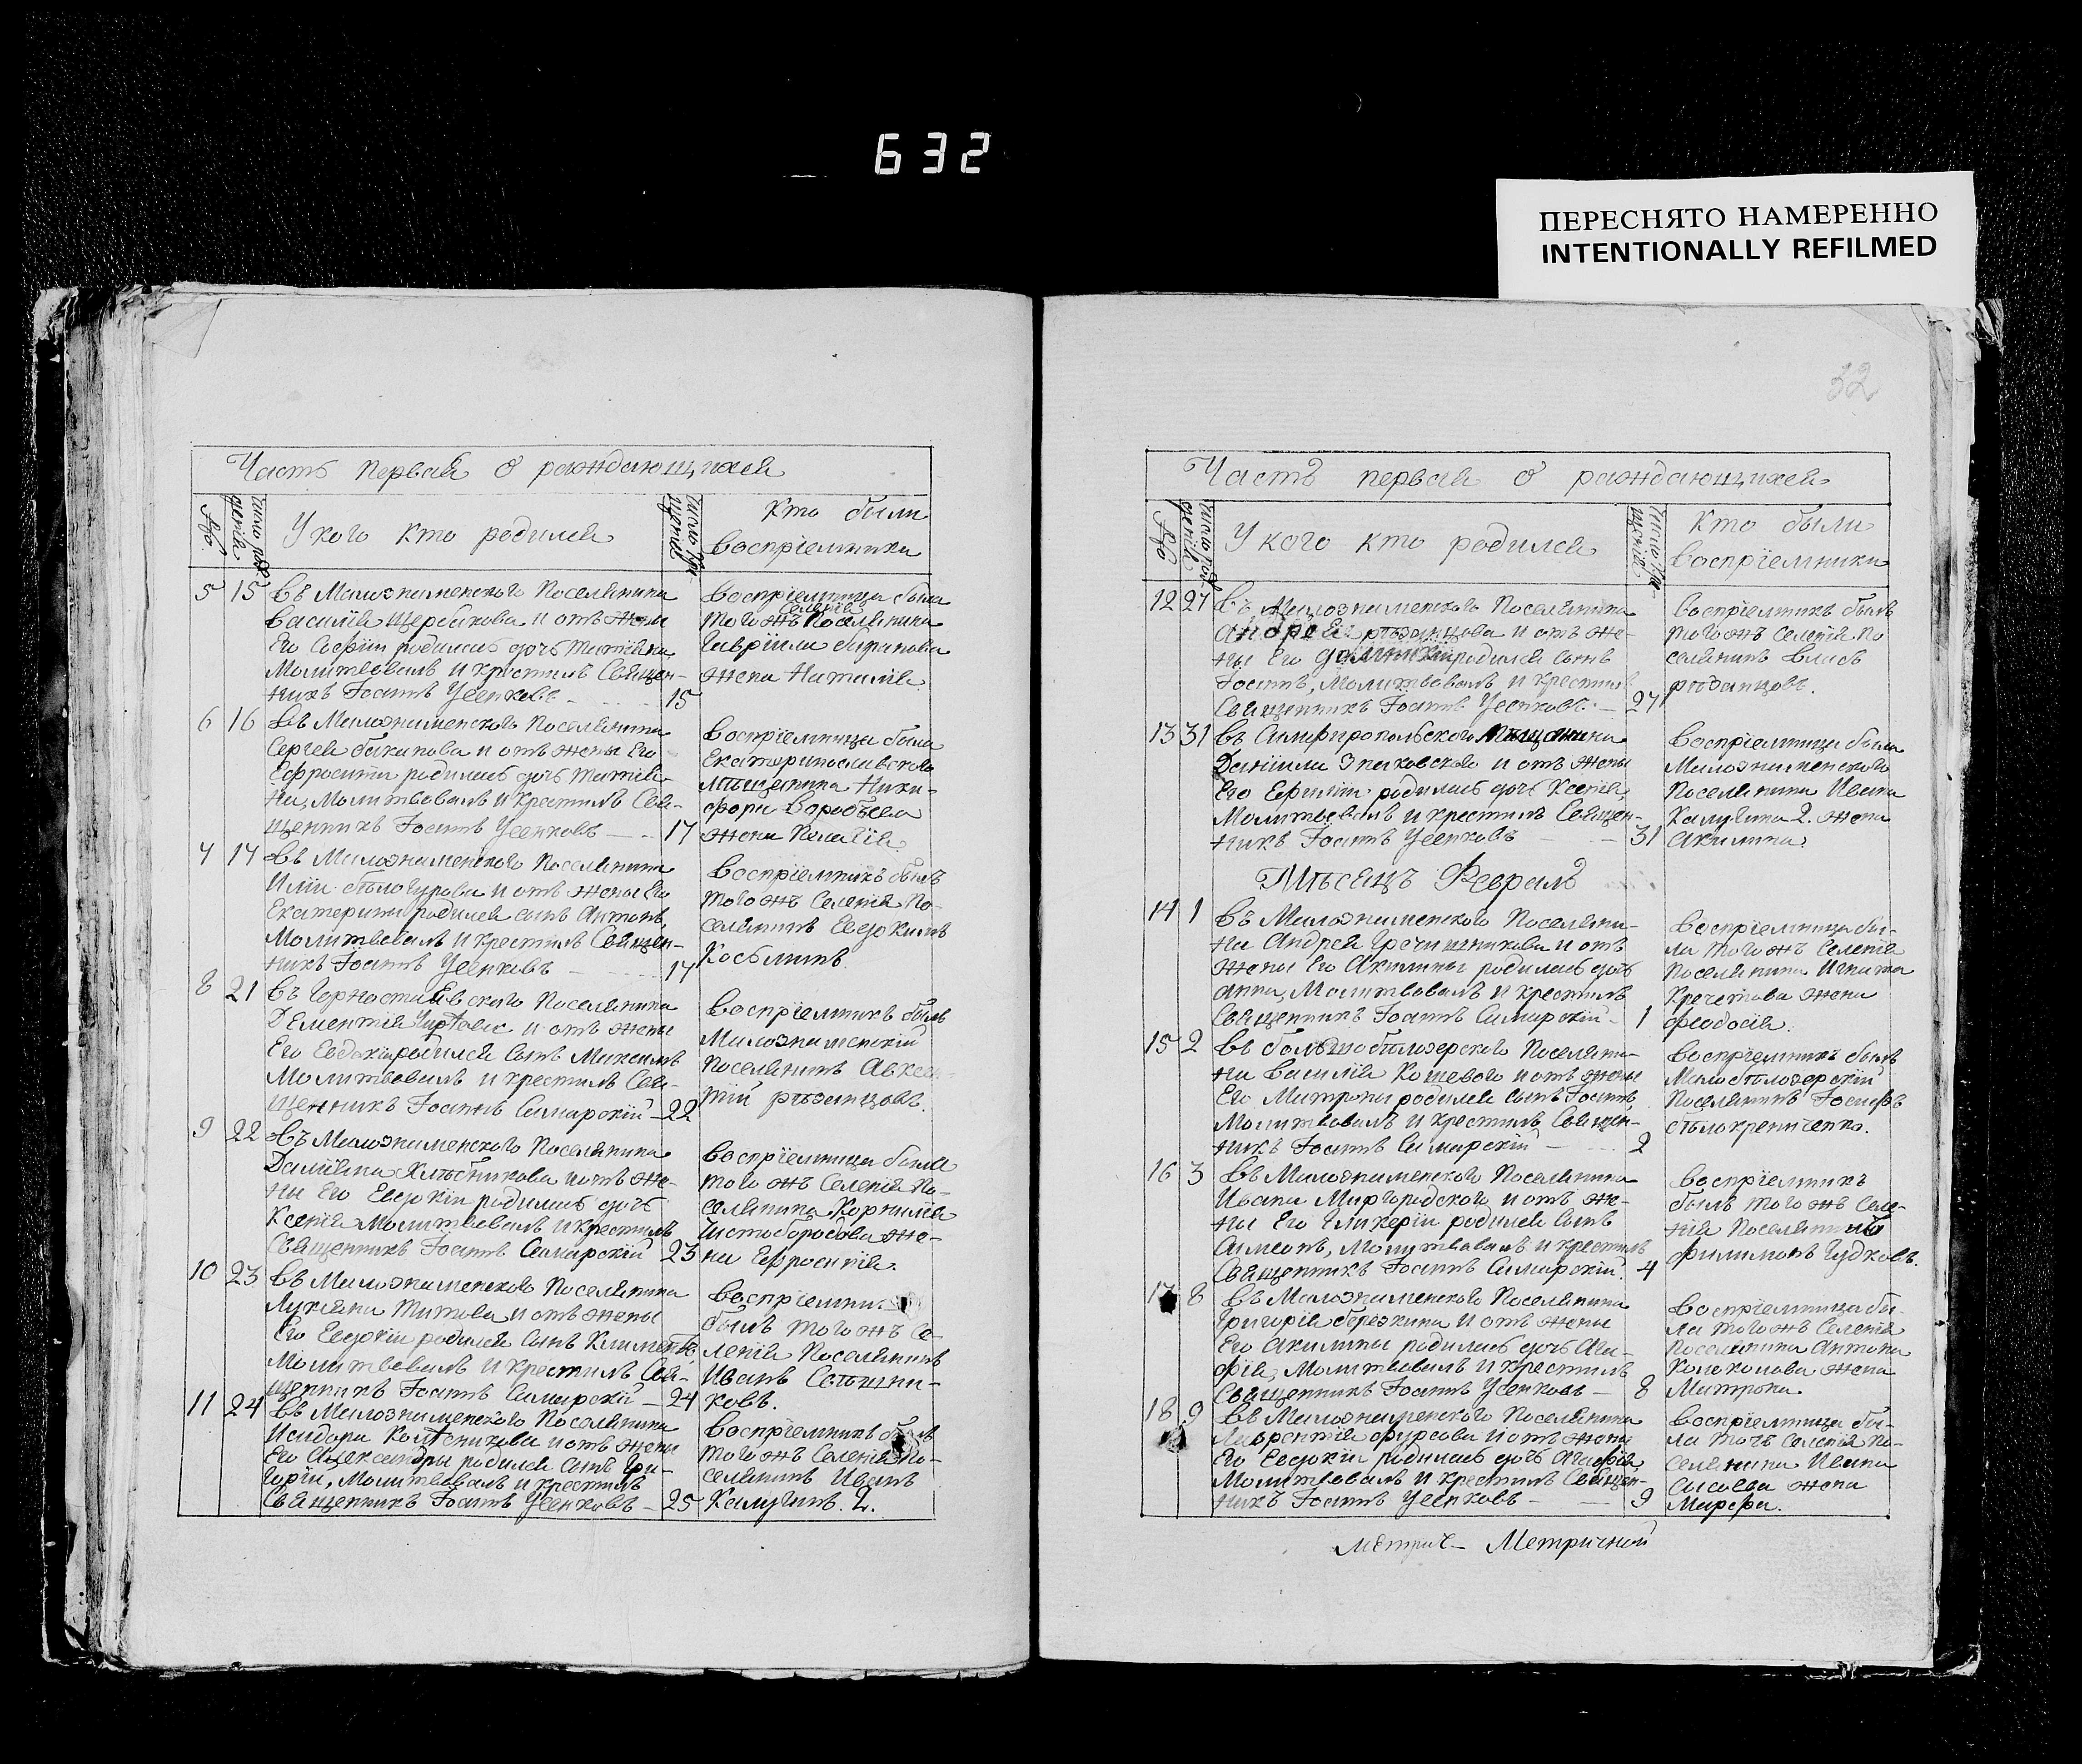 632
ПЕРЕСНЯТО НАМЕРЕННО
INTENTIONALLY REFILMED
32
Часть первая о раждающихся
№
число рожденія
У кого кто родился
число крещенія
Кто были
воспріемники
5 15 въ Малознаменского Поселянина
Василія Щербакова и отъ жены
Его Софіи родилась дочь Татіяна
Молитвовалъ и крестилъ Священ-
никъ Іоаннъ Усенковъ 15
Воспріемница была
того жъ Селенія Поселянина
Гавріила баранова
жена Наталія
6 16 Въ Малознаменского Поселянина
Сергея быканова и отъ жены Его
Ефросинии родилась дочь Татіа-
на, Молитвовалъ и крестилъ Свя-
щенникъ Іоаннъ Усенковъ 17
Воспріемница была
Екатеринославского
мѣщанина Ники-
фора Воробьева
жена Пелагія
7 17 Въ Малознаменского Поселянина
Иліи бѣлогурова и отъ жены Его
Екатерины родился сынъ Антонъ,
Молитвовалъ и крестилъ Священ-
никъ Іоаннъ Усенковъ 17
Воспріемникъ былъ
того жъ Селенія По-
селянинъ Евдокимъ
Косьминъ
8 21 въ Горностаевского Поселянина
Дементія и отъ жены
Его Евдокіи родился сынъ Максимъ
Молитвовалъ и крестилъ Свя-
щенникъ Іоаннъ Самарскій 22
Воспріемникъ былъ
Малознаменскій
Поселянинъ Авксен-
тій рѣзанцовъ.
9 22 Въ Малознаменского Поселянина
Даміяна Хлѣбникова и отъ же-
ны Его Евдокіи родилась дочь
Ксенія Молитвовалъ и крестилъ
Священникъ Іоаннъ Самарскій 23
Воспріемница была
того жъ Селенія По-
селянина Корнилія
Чистобородова же-
на Ефросинія.
10 23 Въ Малознаменского Поселянина
Лукіяна Титова и отъ жены
Его Евдокіи родился сынъ Климентъ,
Молитвовалъ и крестилъ Свя-
щенникъ Іоаннъ Самарскій 24
Воспріемни
былъ того жъ Се-
ленія Поселянинъ
Иванъ
ковъ.
11 24 Въ Малознаменского Поселянина
Исидора и отъ жены
Его Александры родился сынъ Гри-
горій, Молитвовалъ и крестилъ
Священникъ Іоаннъ Усенковъ 25
Воспріемникъ былъ
того жъ Селенія По-
селянинъ Иванъ
Калугинъ. 2.
Часть первая о раждающихся
№
число рожденія
У кого кто родился
число крещенія
Кто были
Воспріемники
12 27 Въ Малознаменского Поселянина
Андрея рѣзанцова и отъ же-
ны Его родился сынъ
Іоаннъ, Молитвовалъ и крестилъ
Священникъ Іоаннъ Усенковъ. 27
Воспріемникъ былъ
того жъ Селенія По
селянинъ Власъ
рѣзанцовъ.
13 31 въ Симферопольского Мѣщанина
Даніила и отъ жены
Его Ефиміи родилась дочь Ксенія,
Молитвовалъ и крестилъ Священ-
никъ Іоаннъ Усенковъ 31
Воспріемница была
Малознаменского
Поселянина Ивана
Калугина 2. жена
Акилина
Мѣсяцъ Февраль
14 1 въ Малознаменского Поселяни-
на Андрея Гречишникова и отъ
жены Его Акилины родилась дочь
Анна, Молитвовалъ и крестилъ
Священникъ Іоаннъ Самарскій 1
Воспріемница бы-
ла того жъ Селенія
Поселянина Игната
Кречетова жена
Феодосія.
15 2 въ большобѣлозерского Поселяни-
на Василія Кошевого и отъ жены
Его Матроны родился сынъ Іоаннъ,
Молитвовалъ и крестилъ Священ-
никъ Іоаннъ Самарскій 2
Воспріемникъ былъ
Малобѣлозерскій
Поселянинъ Іосифъ
16 3 Въ Малознаменского Поселянина
Ивана Миргородского, и отъ же-
ны Его Гликеріи родился сынъ
Симеонъ, Молитвовалъ и крестилъ
Священникъ Іоаннъ Самарскій. 4
Воспріемникъ
былъ того жъ Селе-
нія Поселянинъ
Филимонъ Гудковъ.
17 8 Въ Малознаменского Поселянина
Григорія березкина и отъ жены
Его Акилины родилась дочь Ага-
фія, Молитвовалъ и крестилъ
Священникъ Іоаннъ Усенковъ 8
Воспріемница бы-
ла того жъ Селенія
Поселянина Антона
Колоколова жена
Матрона.
18 9 Въ Малознаменского Поселянина
Лаврентія фурсова и отъ жены
Его Евдокіи родилась дочь Агафія,
Молитвовалъ и крестилъ Священ-
никъ Іоаннъ Усенковъ 9
Воспріемница бы-
ла тогъ Селенія По-
селянина Ивана
Сысоева жена
Марфа.
Метрич- Метричной